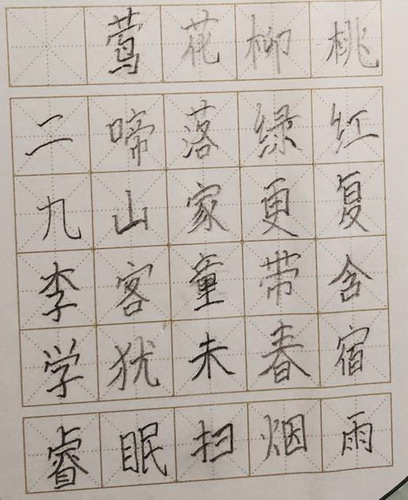 桃红复含宿雨
柳绿更带春烟
花落家童未扫
莺啼山客犹眠
二九李学睿